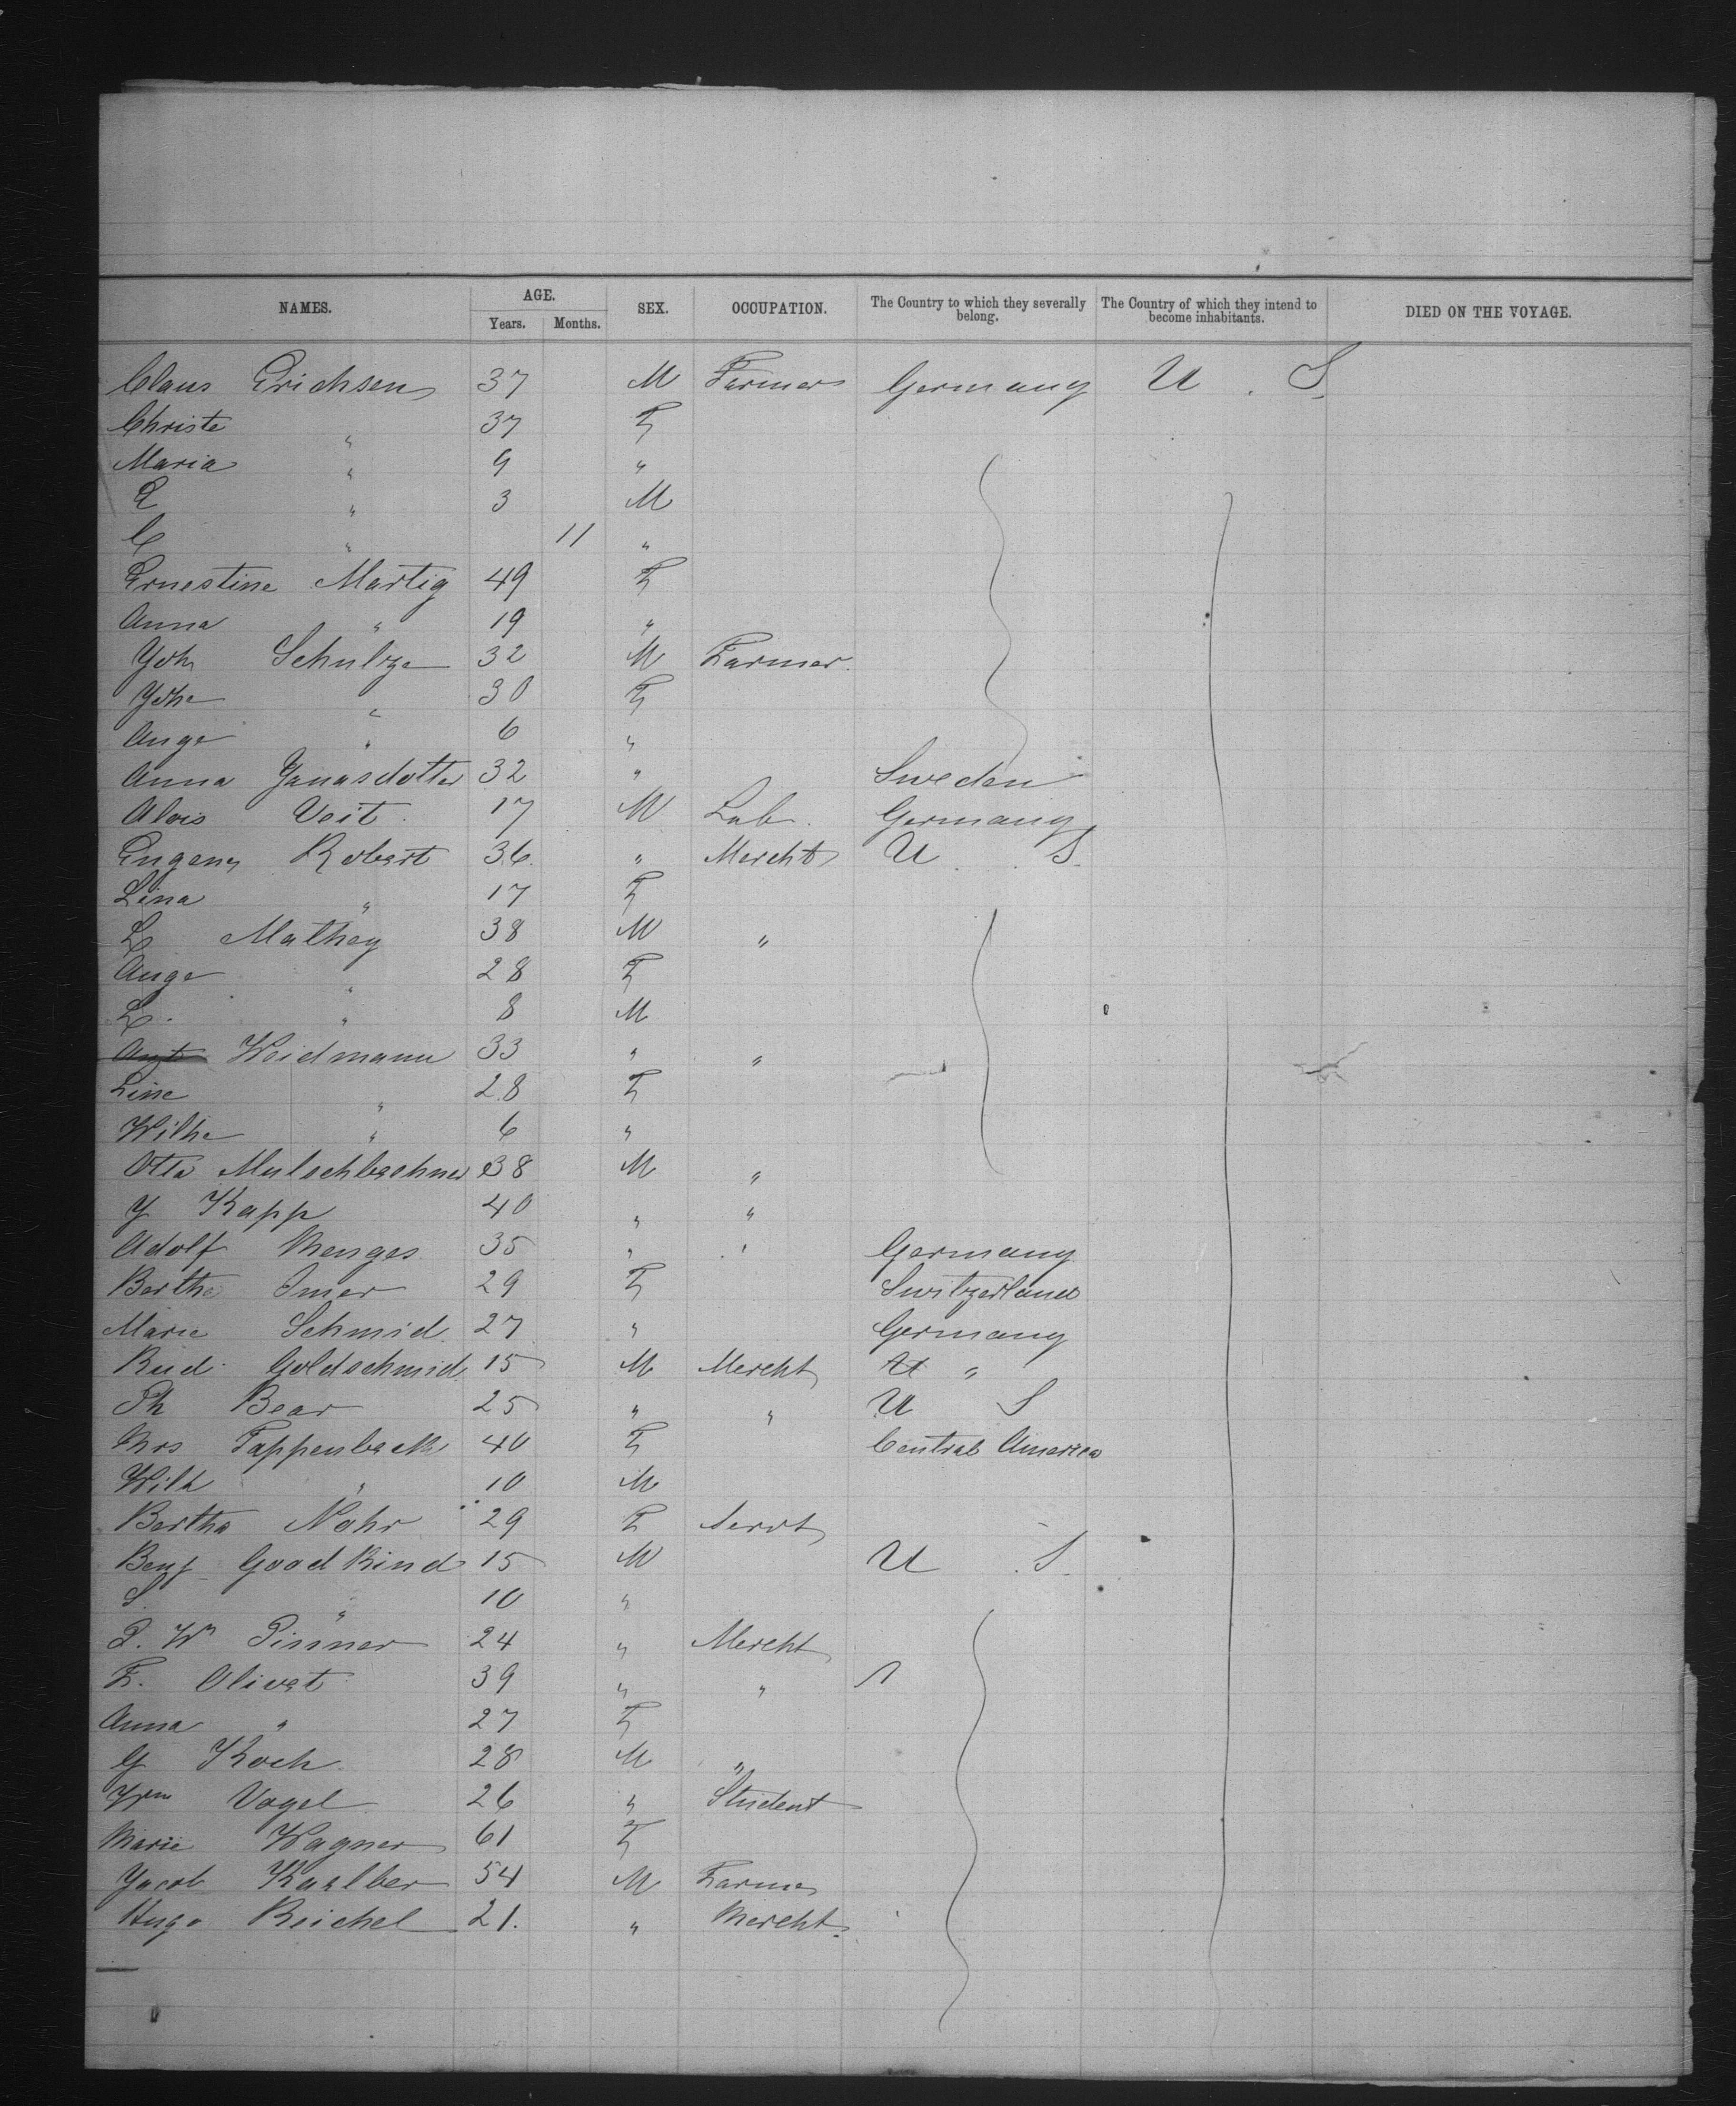 NAMES. AGE. Years. Months. SEX. OCCUPATION. The Country to which they severally belong. The Country of which they intend to become inhabitants. DIED ON THE VOYAGE.
Claus Erichsen 37 M Farmer Germany U. S.
Christe " 37 F
Maria " 9 "
E " 3 M
C " 11 "
Ernestine Martig 49 F
Anna " 19 "
Joh Schulze 32 M Farmer.
Johe " 30 F
Auge " 6 "
Anna Janasdotter 32 " Sweden
Alois Veit 17 M Lab. Germany
Eugen Robert 36 " Mercht U. S.
Lina " 17 F
L Mathey 38 M "
Auge " 28 F
L. " 8 M
Weidmann 33 " "
Line " 28 F
Wilhe " 6 "
Otto 38 M "
J Kapp 40 " "
Adolf Menges 35 " " Germany
Bertha Imer 29 F Switzerland
Marie Schmid 27 " Germany
Rud. Goldschmid 15 M Mercht U "
Th Bear 25 " " U S
Mrs Tappenback 40 F Central America
Wilh " 10 M
Bertha Nohr 29 F Servt
Benj Goodkind 15 M U. S.
S. " 10 "
P. Wm Pinner 24 " Mercht
F. Olivat 39 " "
Anna " 27 F
G Koch 28 M "
Wm Vogel 26 " Student
Marie Wagner 61 F
Jacob Kaelber 54 M Farmer
Hugo Reichel 21. " Mercht.